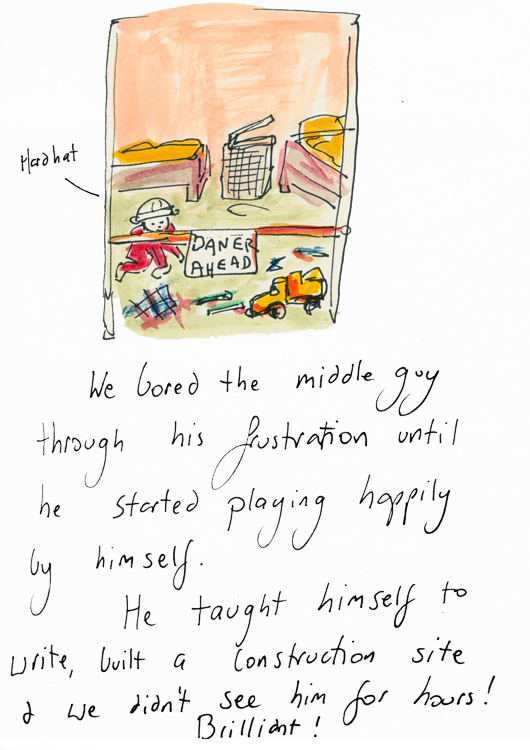 Hard hat
DANER
AHEAD
We bored the middle guy
through his frustration until
he started playing happily
by himself.
He taught himself to
write, built a construction site
& we didn't see him for hours!
Brilliant!